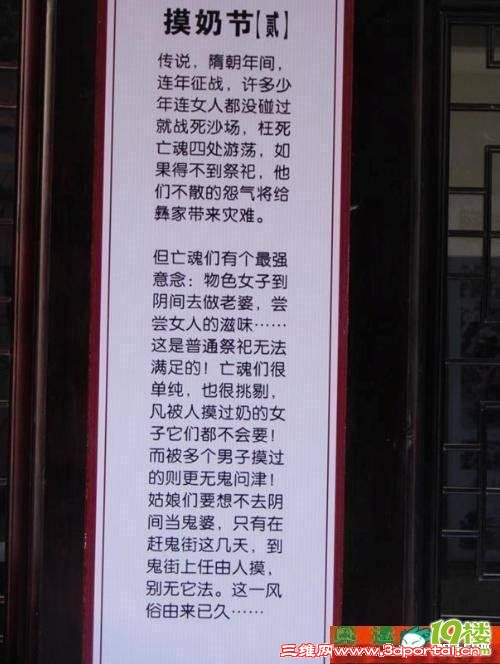 摸奶节【贰】
传说，隋朝年间，
连年征战，许多少
年连女人都没碰过
就战死沙场，枉死
亡魂四处游荡，如
果得不到祭祀，他
们不散的怨气将给
彝家带来灾难。
但亡魂们有个最强
意念：物色女子到
阴间去做老婆，尝
尝女人的滋味……
这是普通祭祀无法
满足的！亡魂们很
单纯，也很挑剔，
凡被人摸过奶的女
子它们都不会要！
而被多个男子摸过
的则更无鬼问津！
姑娘们要想不去阴
间当鬼婆，只有在
赶鬼街这几天，到
鬼街上任由人摸，
别无它法。这一风
俗由来已久……
19楼
三维网www.3dportal.cn